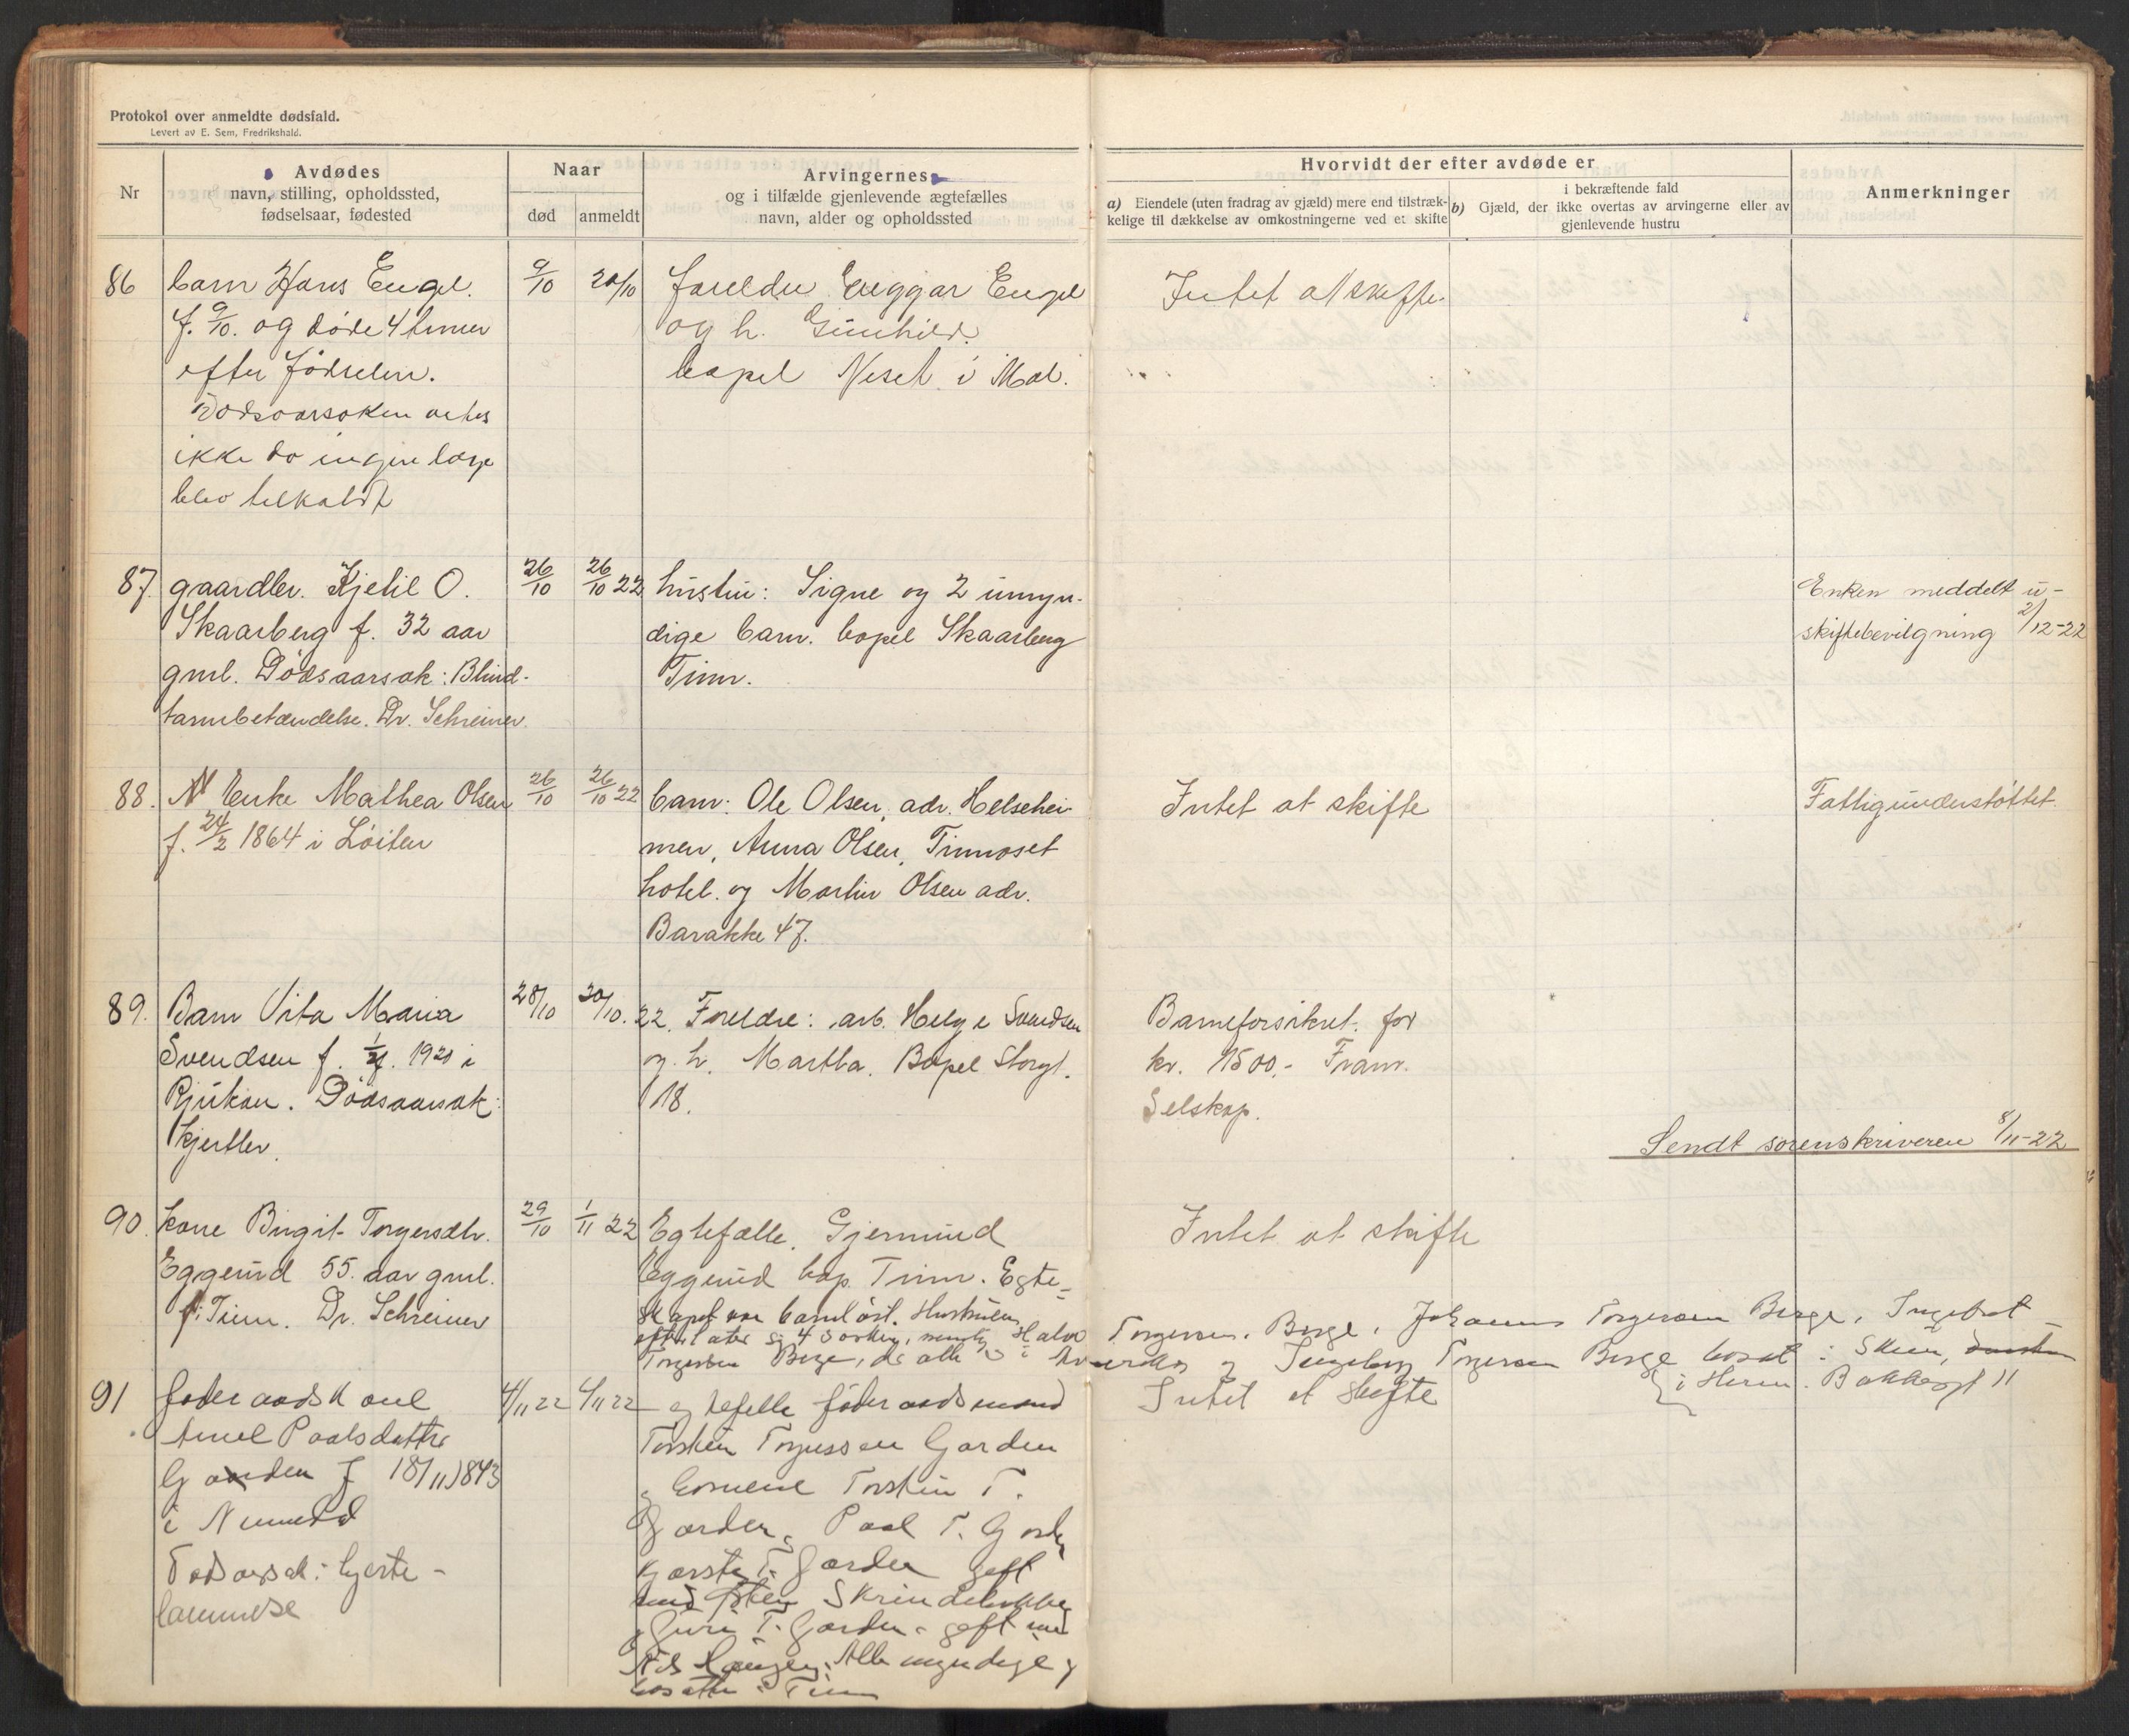 Protokol over anmeldte dødsfald.
Levert av E. Sem, Fredrikshald.
Nr
Avdødes
navn, stilling, opholdssted,
fødselsaar, fødested
Naar
død
anmeldt
Arvingernes
og i tilfælde gjenlevende ægtefælles
navn, alder og opholdssted
Hvorvidt der efter avdøde er
a) Eiendele (uten fradrag av gjæld) mere end tilstræk-
kelige til dækkelse av omkostningerne ved et skifte
i bekræftende fald
b) Gjæld, der ikke overtas av arvingerne eller av
gjenlevende hustru
Anmerkninger
86
barn Hans Engel.
f. 9/10. og døde 4 timer
efter fødselen.
Dødsaarsaken vites
ikke da ingen læge
blev tilkaldt
9/10
20/10
foreldre Engel
og h. Gunhild.
bopel Neset i Mæl.
Intet at skifte
87.
gaardbr. Kjetil O.
Skaarberg f. 32 aar
gml. Dødsaarsak: Blind-
tarmbetændelse. Dr. Schreiner.
26/10
26/10 22
hustru: Signe og 2 umyn-
dige barn. bopel Skaarberg
Tinn.
Enken meddelt u-
skiftebevilgning 2/12-22
88.
Enke Mathea Olsen
f. 24/2 1864 i Löiten
26/10
26/10 22
barn: Ole Olsen, adr. Helsehei-
men, Anna Olsen, Tinnoset
hotel. og Martin Olsen adr.
Barakke 47.
Intet at skifte
Fattigunderstøttet.
89.
Barn Vita Maria
Svendsen f. 1921 i
Rjukan. Dødsaarsak:
kjertler.
28/10
30/10. 22.
Foreldre: arb. Helge Svendsen
og h. Martha. Bopel Storgt.
18.
Barneforsikret. for
kr. 1500.- Fram.
Selskap.
Sendt sorenskriveren 8/11-22
90.
kone Birgit Torgersdtr.
Eggerud 55. aar gml.
f. i Tinn. Dr. Schreiner
29/10
1/11 22
Egtefælle. Gjermund
Eggerud bop. Tinn. Egte-
skapet var barnløst. Hustruen
efterlater sig 4 søsken, nemlig Halvor Torgersen Berge, Johannes Torgersen Berge, Ingebret
Torgersen Berge, de alle og Ingeborg Torgersen Berge bosat i Skien,
i Herm. Bakkesgt 11
Intet at skifte
91
föderaadskone
Paalsdatter
Garden f 18/11 1843
i Numedal
Dødsarsak: hjerte-
lammelse
4/11 22
4/11 22
egtefelle föderaadsmand
Torstein Garden
Torstein T.
Garden, Paal T. Garden
T. Garden gift
med Skrindebakke
Guri T. Garden gift med
Nils. Alle myndige og
bosatte i Tinn
Intet at skifte